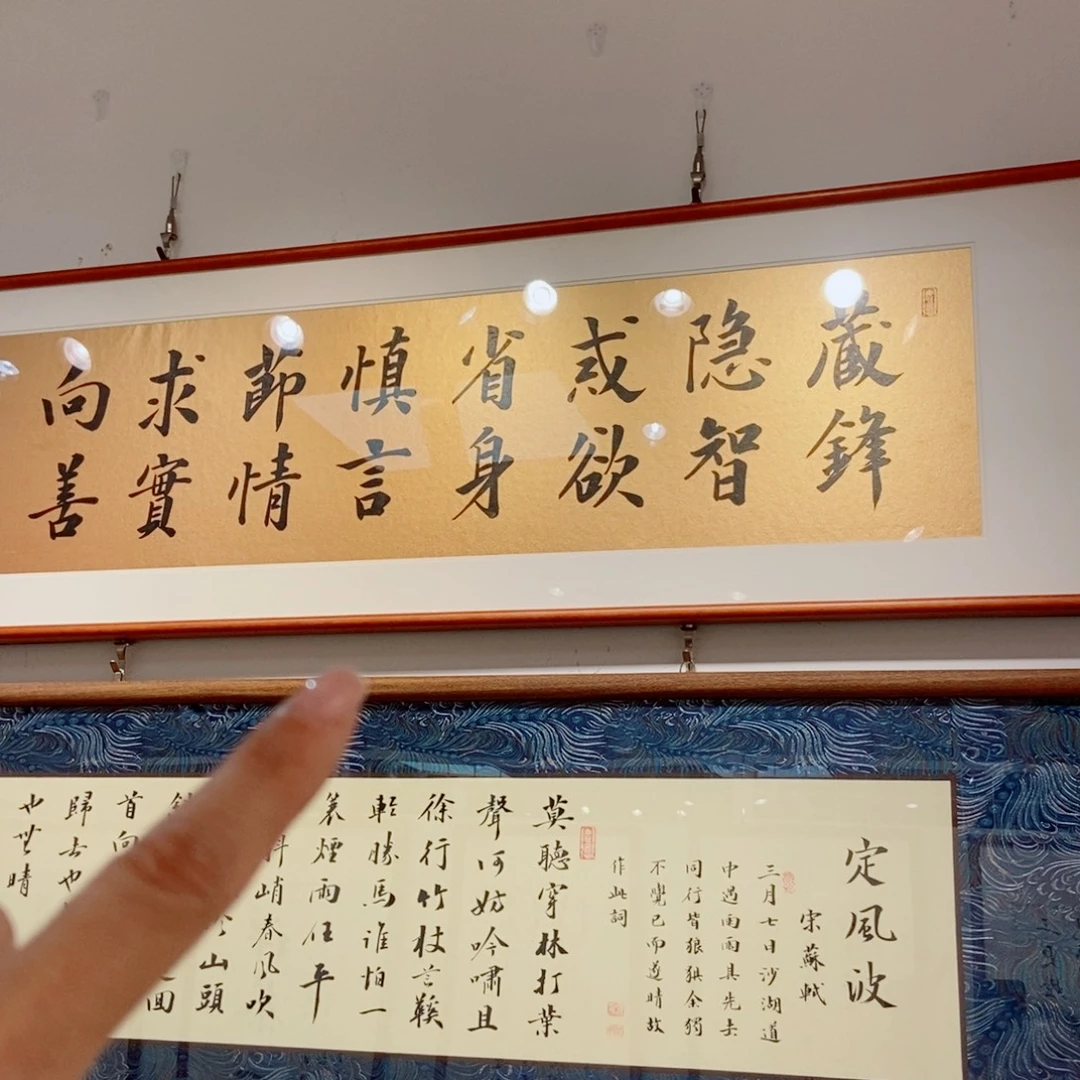 藏鋒
隐智
戒欲
省身
慎言
節情
求實
向善
定風波
宋蘇軾
三月七日沙湖道
中遇雨雨具先去
同行皆狼狽余獨
不覺已而遂晴故
作此詞
莫聽穿林打葉
聲何妨吟嘯且
徐行竹杖芒鞵
輕勝馬誰怕一
蓑煙雨任平
峭春風吹
山頭
回
首向
歸去也
也無晴